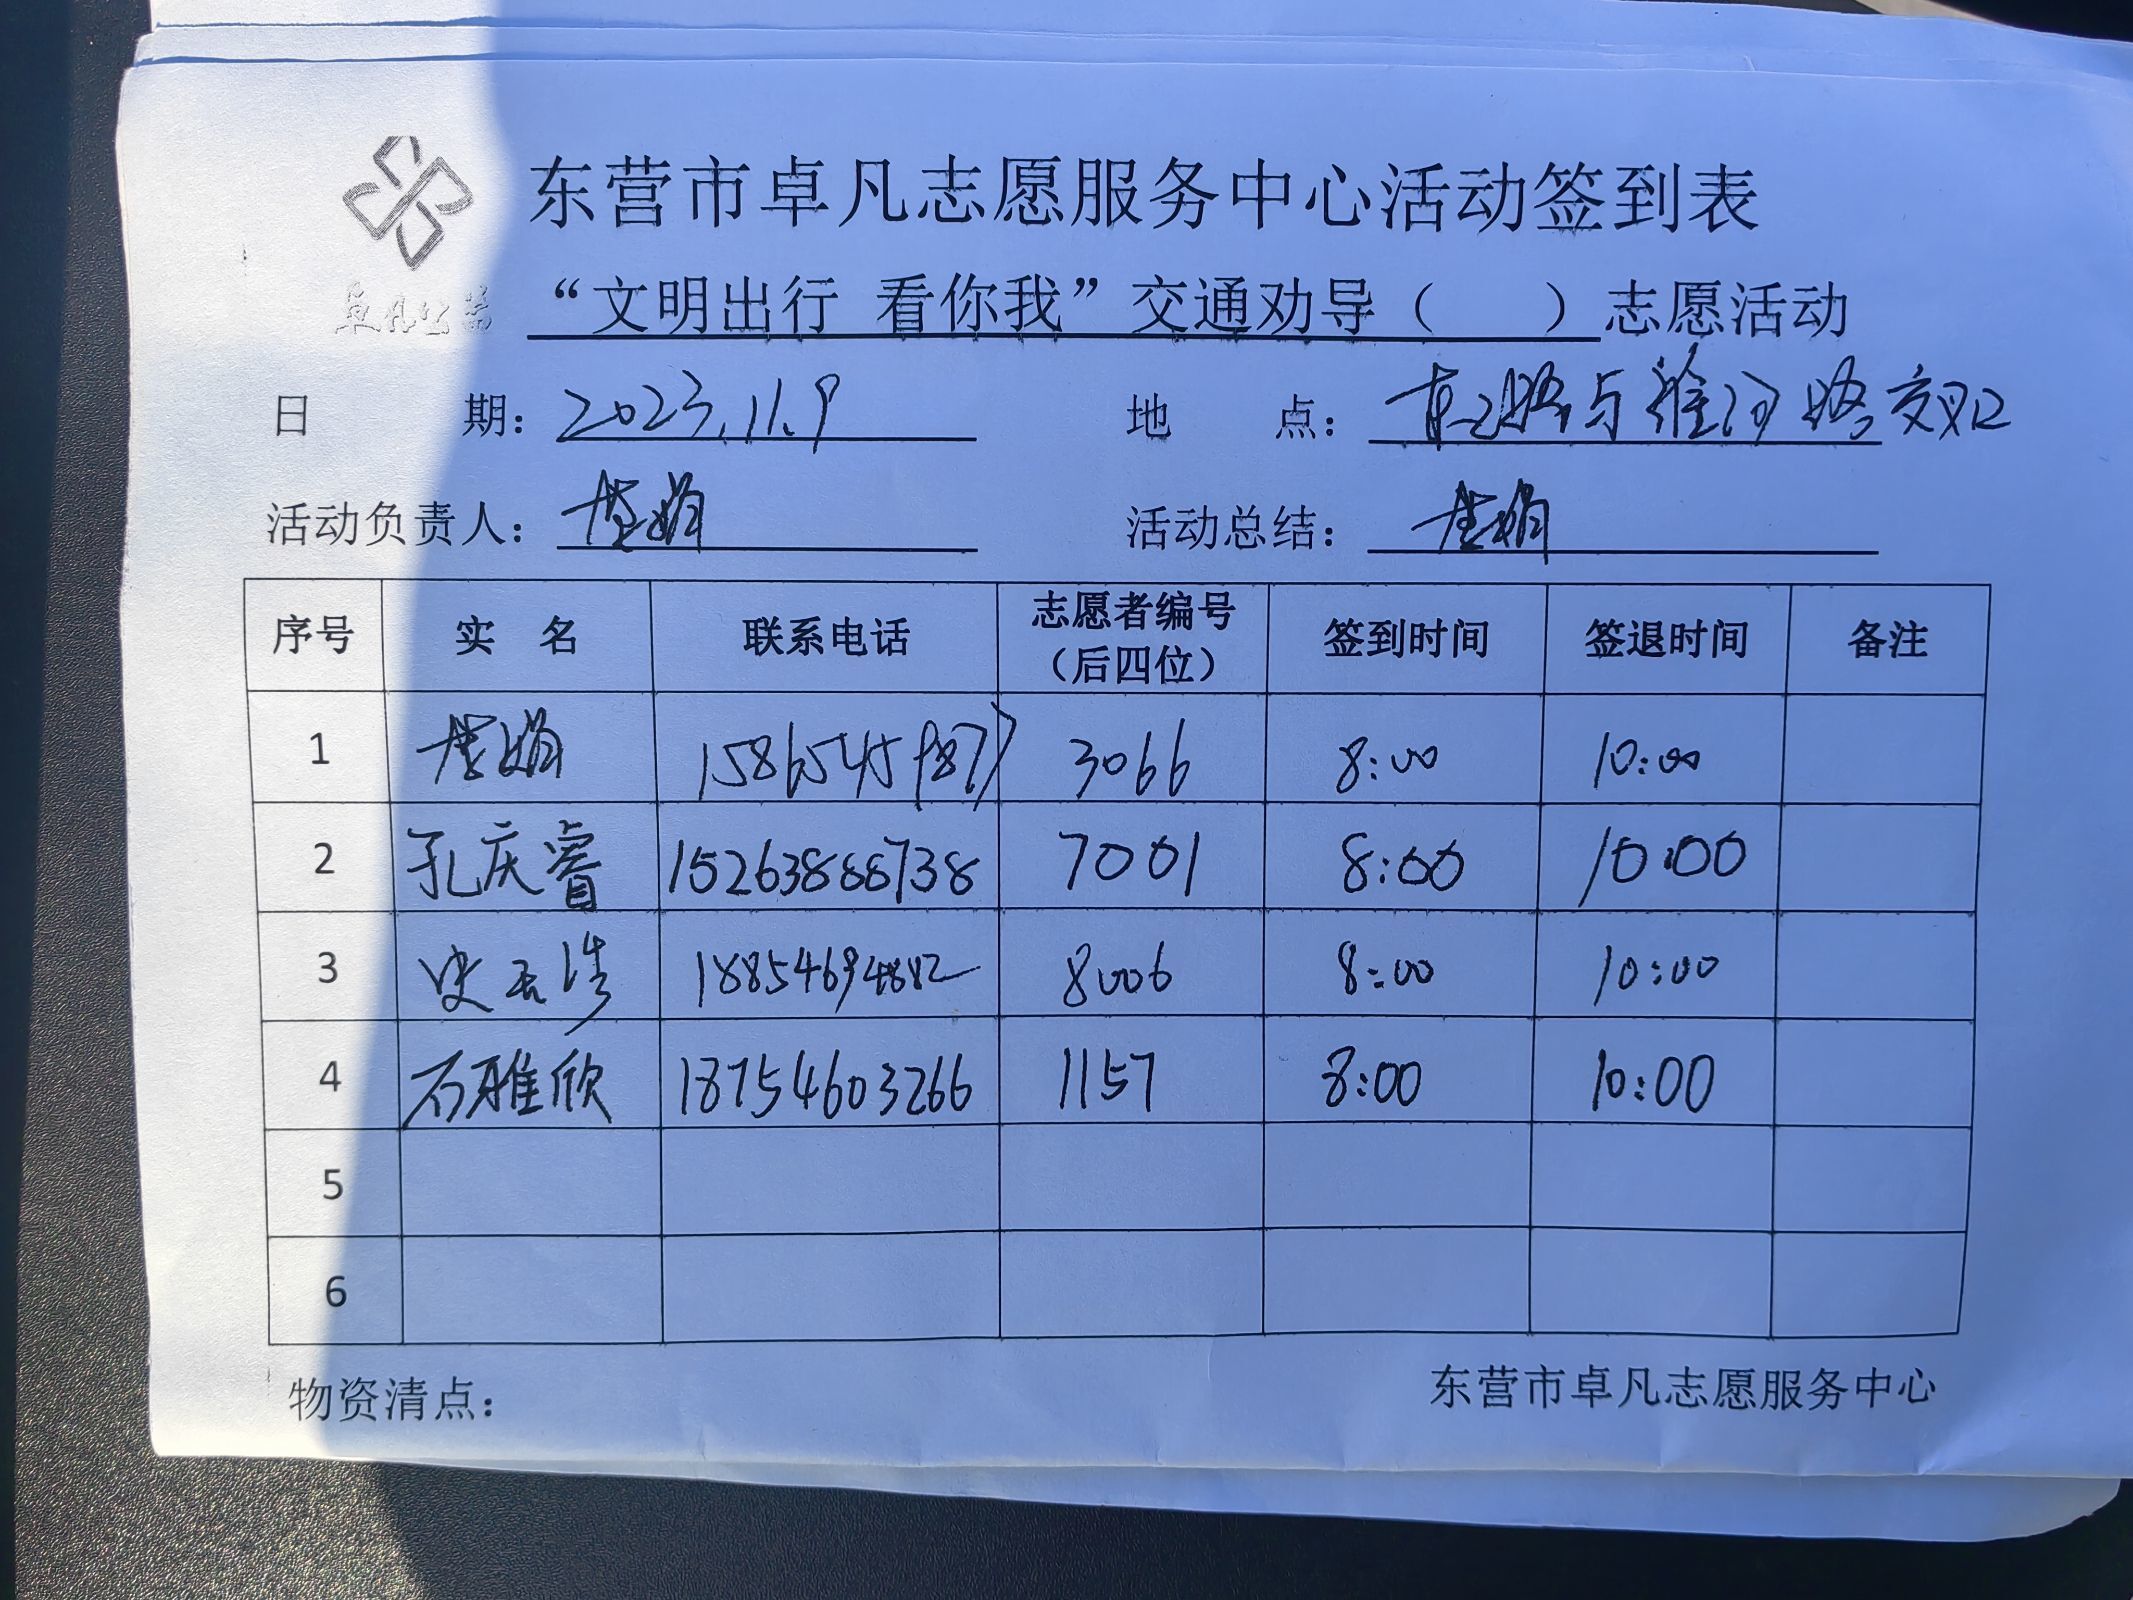 东营市卓凡志愿服务中心活动签到表
卓凡公益
“文明出行 看你我”交通劝导（ ）志愿活动
日 期： 2023.11.9 地 点： 路与 河路交叉口
活动负责人： 娟 活动总结： 娟
序号 实 名 联系电话 志愿者编号（后四位） 签到时间 签退时间 备注
1 娟 15865459877 3066 8:00 10:00
2 孔庆睿 15263888738 7001 8:00 10:00
3 史 浩 18854694882 8006 8:00 10:00
4 石雅欣 18754603266 1157 8:00 10:00
5
6
物资清点： 东营市卓凡志愿服务中心